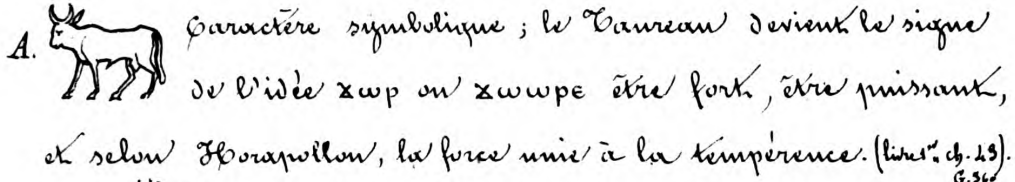 A. Caractère symbolique ; le Taureau devient le signe
de l'idée ϫωρ ou ϫωωρε être fort, être puissant,
et selon Horapollon, la force unie à la tempérence. (livre 1er ch. 43).
G.360